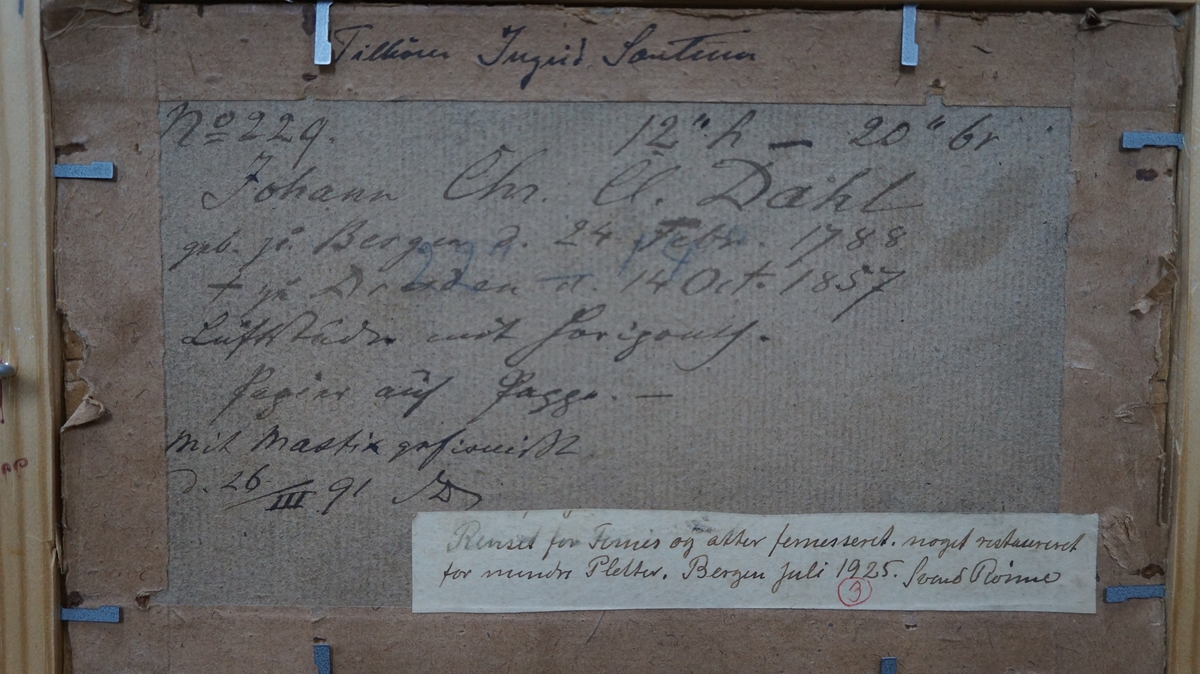 Tilhörer Ingrid
No 229. 12" h – 20" br
Johann Chr. Cl. Dahl
geb. zu Bergen d. 24 Febr. 1788
† zu Dresden d. 14 Oct. 1857
Luftstudie mit Horizont.
Papier auf Pappe. –
Mit Mastix gefirnisst
d. 26/III 91
Renset for Fernis og atter fernisseret. noget restaureret
for mindre Pletter. Bergen Juli 1925. Svend Rønne
3